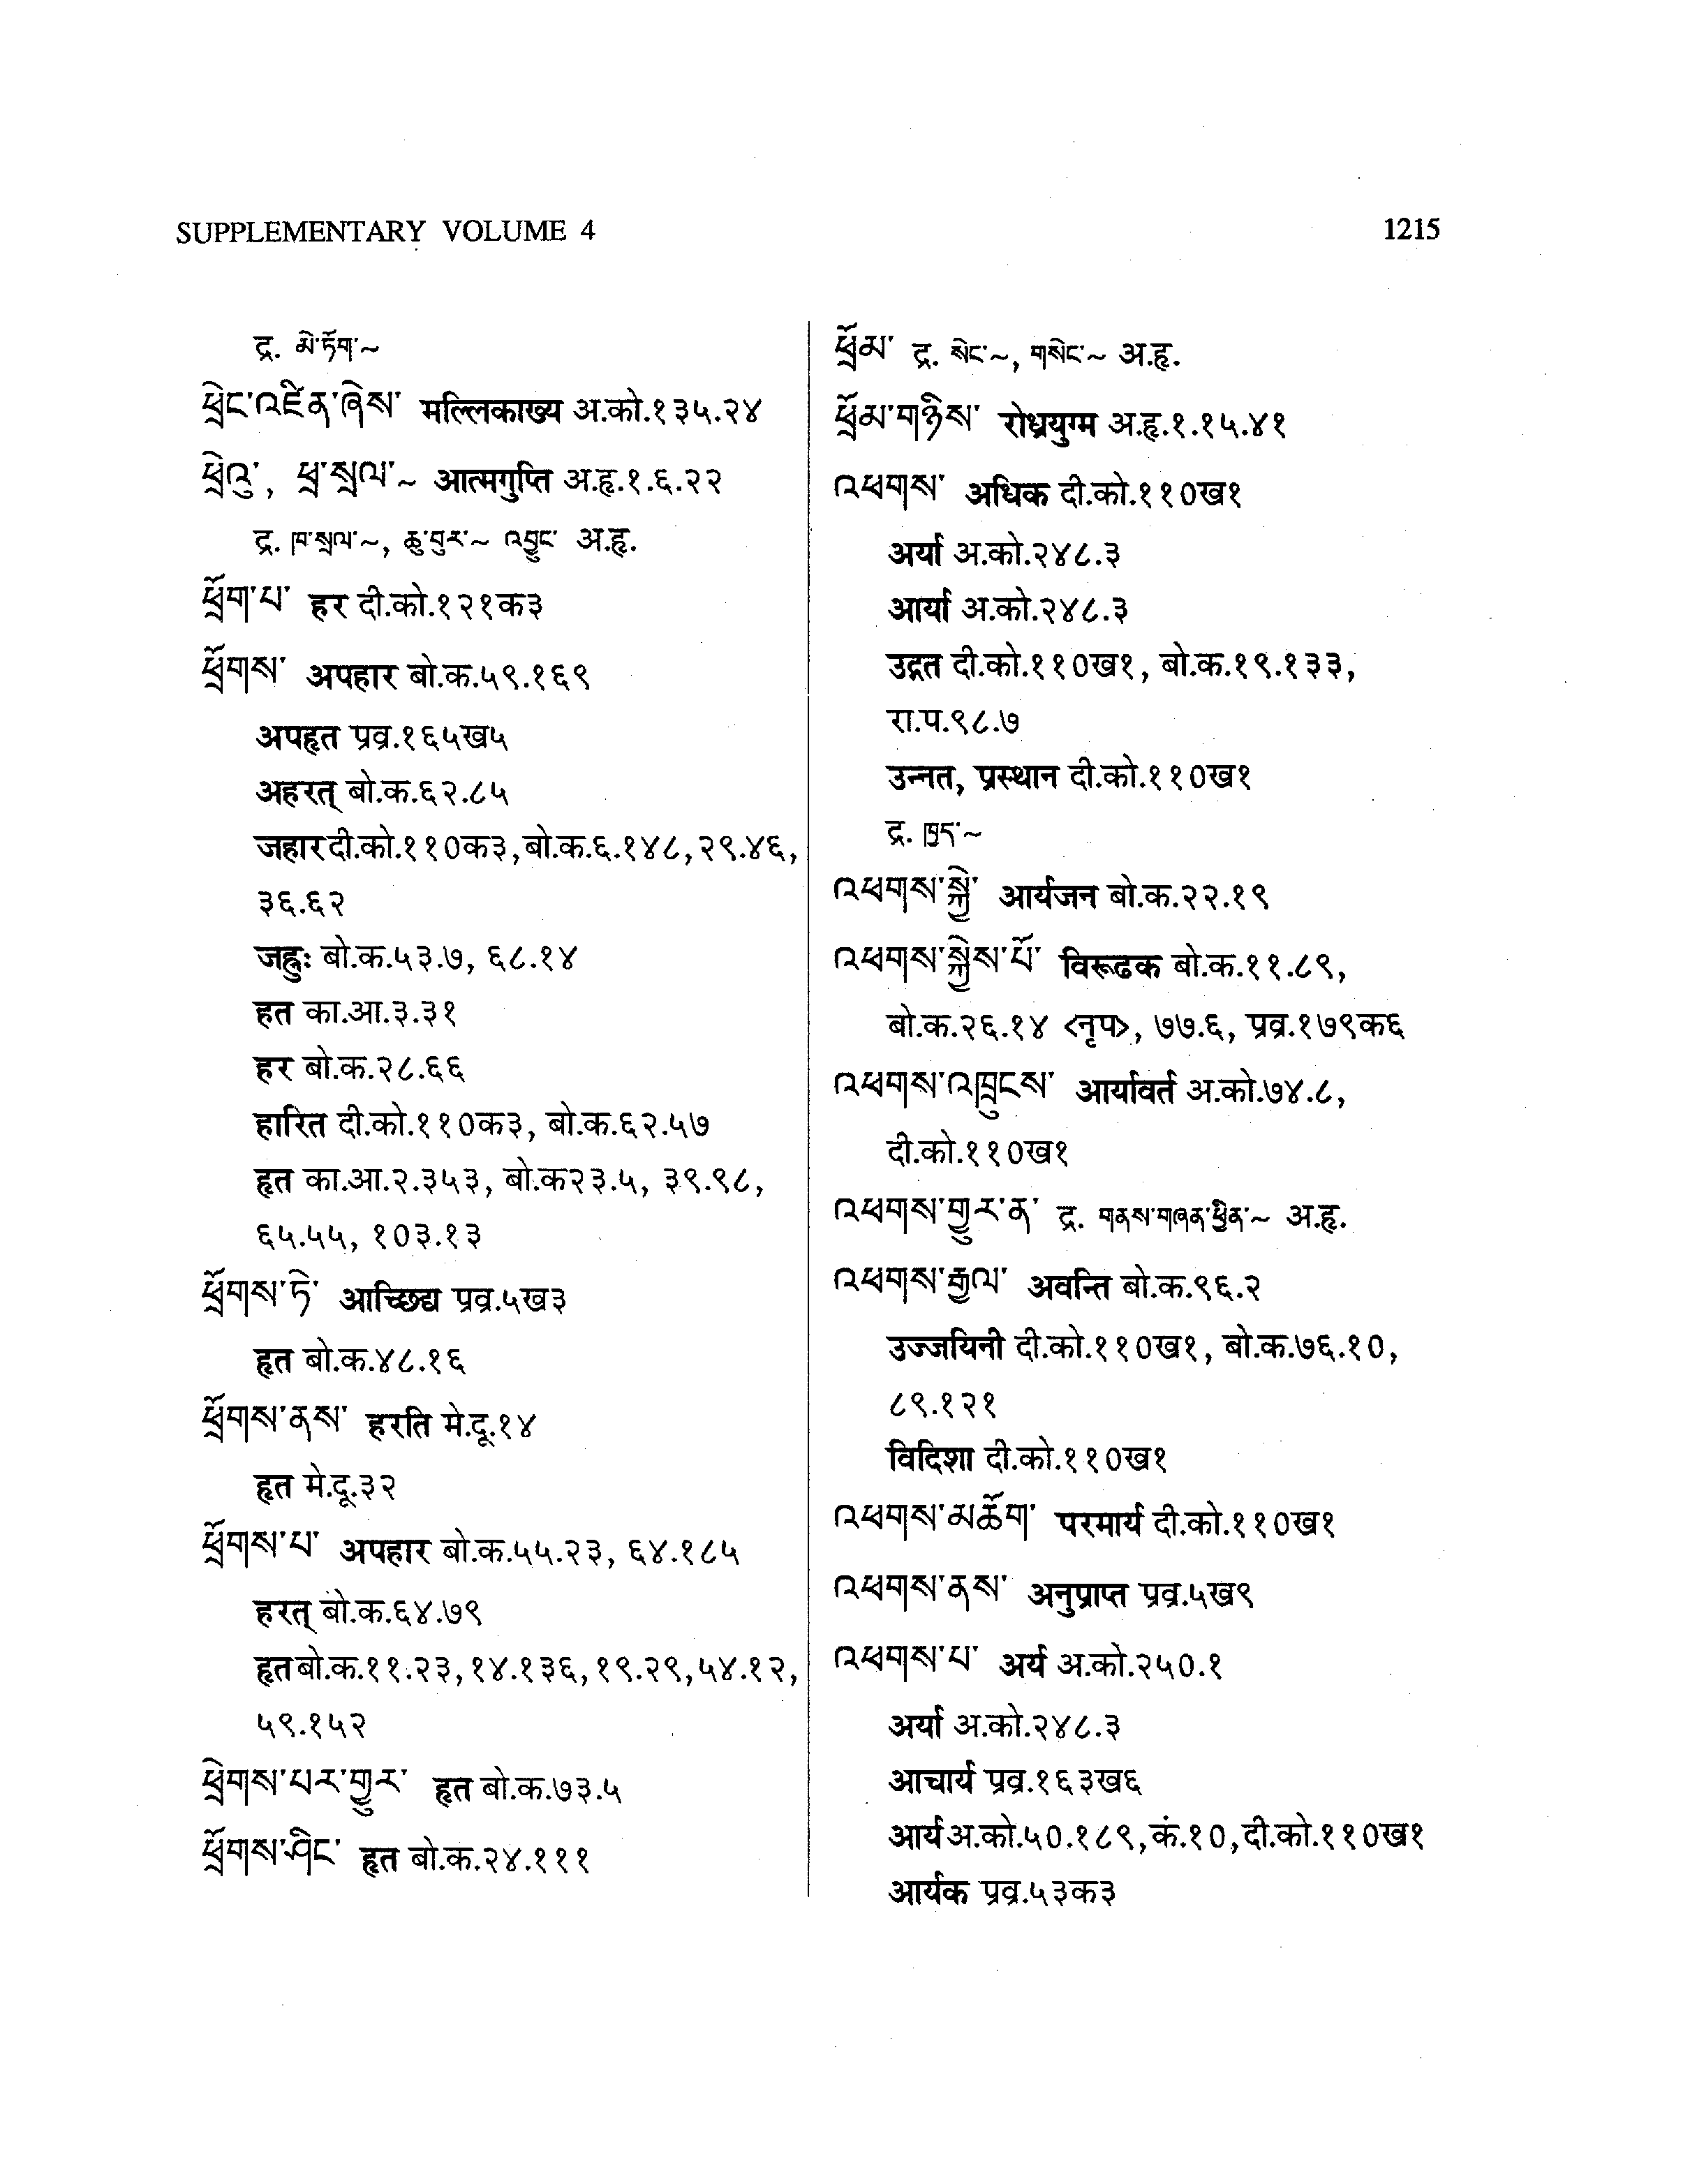 SUPPLEMENTARY VOLUME 4
1215
द्र. མེ་ཏོག་~
ཕྲེང་འཛིན་ཞེས་ मल्लिकाख्य अ.को.१३५.२४
ཕྲེའུ་, ཕྲ་སྲལ་~ आत्मगुप्ति अ.हृ.१.६.२२
द्र. ཁ་སྲལ་~, ཆུ་བུར་~ འབྱུང་ अ.हृ.
ཕྲོག་པ་ हर दी.को.१२१क३
ཕྲོགས་ अपहार बो.क.५९.१६९
अपहृत प्रव्र.१६५ख५
अहरत् बो.क.६२.८५
जहार दी.को.११०क३, बो.क.६.१४८, २९.४६,
३६.६२
जह्रुः बो.क.५३.७, ६८.१४
हत का.आ.३.३१
हर बो.क.२८.६६
हारित दी.को.११०क३, बो.क.६२.५७
हृत का.आ.२.३५३, बो.क२३.५, ३९.९८,
६५.५५, १०३.१३
ཕྲོགས་ཏེ་ आच्छिद्य प्रव्र.५ख३
हृत बो.क.४८.१६
ཕྲོགས་ནས་ हरति मे.दू.१४
हृत मे.दू.३२
ཕྲོགས་པ་ अपहार बो.क.५५.२३, ६४.१८५
हरत् बो.क.६४.७९
हृत बो.क.११.२३, १४.१३६, १९.२९, ५४.१२,
५९.१५२
ཕྲེགས་པར་གྱུར་ हृत बो.क.७३.५
ཕྲོགས་ཤིང་ हृत बो.क.२४.१११
ཕྲོམ་ द्र. སེང་~, གསེང་~ अ.हृ.
ཕྲོམ་གཉིས་ रोध्रयुग्म अ.हृ.१.१५.४१
འཕགས་ अधिक दी.को.११०ख१
अर्या अ.को.२४८.३
आर्या अ.को.२४८.३
उद्गत दी.को.११०ख१, बो.क.१९.१३३,
रा.प.९८.७
उन्नत, प्रस्थान दी.को.११०ख१
द्र. ཁྱད་~
འཕགས་སྐྱེ་ आर्यजन बो.क.२२.१९
འཕགས་སྐྱེས་པོ་ विरूढक बो.क.११.८९,
बो.क.२६.१४ <नृप>, ७७.६, प्रव्र.१७९क६
འཕགས་འཁྲུངས་ आर्यावर्त अ.को.७४.८,
दी.को.११०ख१
འཕགས་གྱུར་ན་ द्र. གནས་གཞན་ཕྱིན་~ अ.हृ.
འཕགས་རྒྱལ་ अवन्ति बो.क.९६.२
उज्जयिनी दी.को.११०ख१, बो.क.७६.१०,
८९.१२१
विदिशा दी.को.११०ख१
འཕགས་མཆོག་ परमार्य दी.को.११०ख१
འཕགས་ནས་ अनुप्राप्त प्रव्र.५ख९
འཕགས་པ་ अर्य अ.को.२५०.१
अर्या अ.को.२४८.३
आचार्य प्रव्र.१६३ख६
आर्य अ.को.५०.१८९, कं.१०, दी.को.११०ख१
आर्यक प्रव्र.५३क३